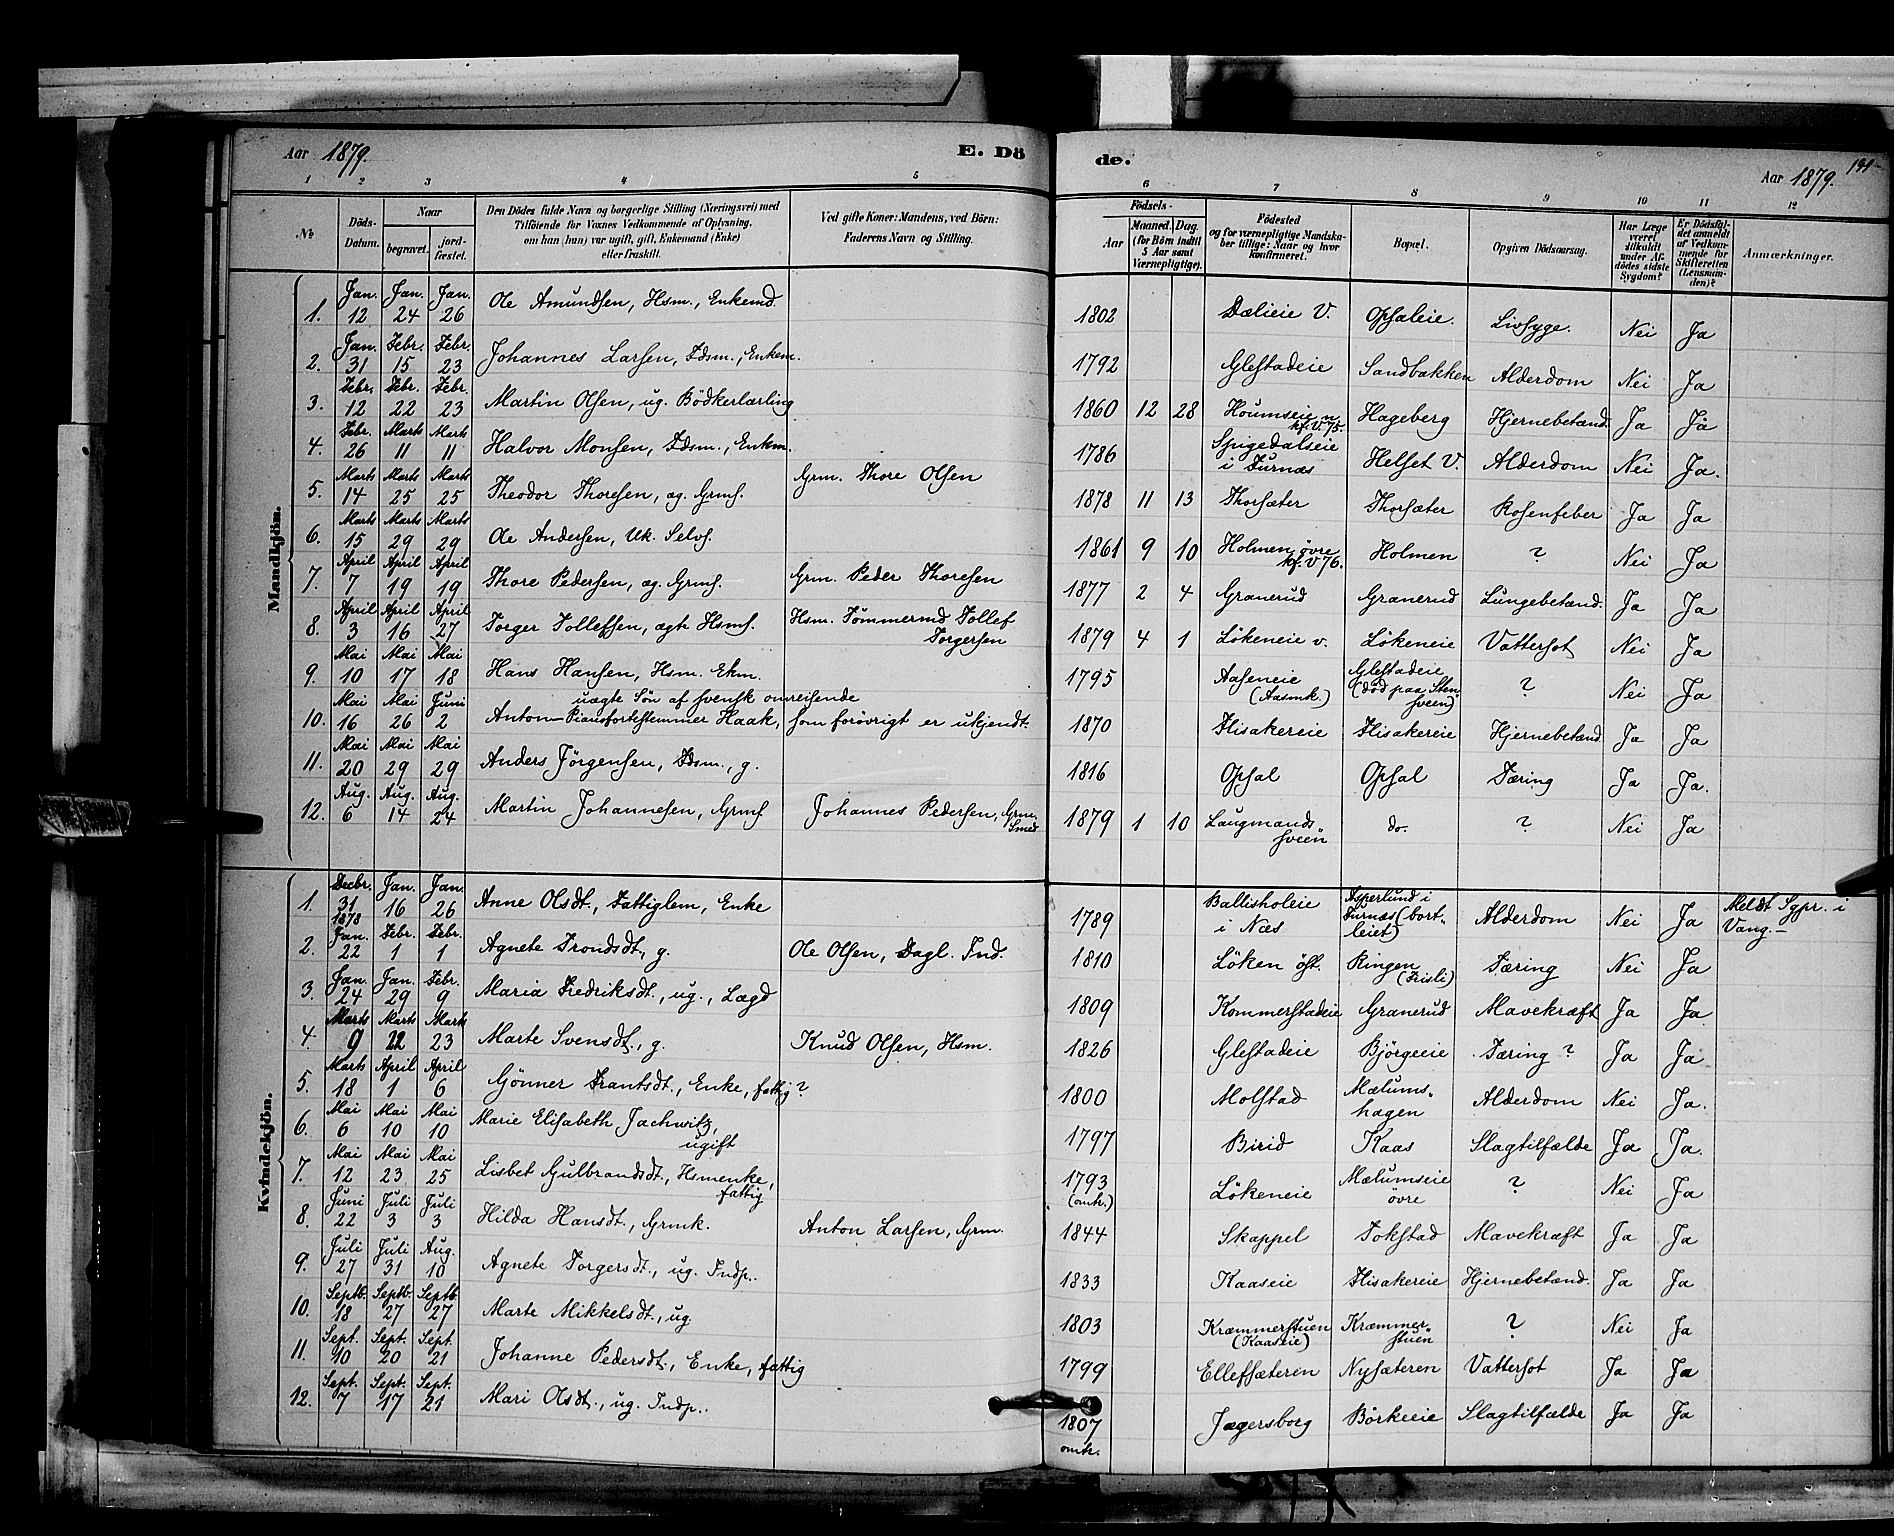 Aar 1879. E. Dö
de. Aar 1879. 191
1 2 3 4 5 6 7 8 9 10 11 12
No. Döds-Datum. Naar begravet. jord-fæstet. Den Dödes fulde Navn og borgerlige Stilling (Næringsvei) med Tilföiende for Voxnes Vedkommende af Oplysning, om han (hun) var ugift, gift, Enkemand (Enke) eller fraskilt. Ved gifte Koner: Mandens, ved Börn: Faderens Navn og Stilling. Födsels- Aar Maaned. Dag. (for Börn indtil 5 Aar samt Værnepligtige). Födested og for værnepligtige Mandskaber tillige: Naar og hvor konfirmeret. Bopæl. Opgiven Dödsaarsag. Har Læge været tilkaldt under Afdödes sidste Sygdom? Er Dödsfaldet anmeldt af Vedkommende for Skifteretten (Lensmanden)? Anmærkninger.
Mandkjön.
1. Jan. 12 Jan. 24 Jan. 26 Ole Amundsen, Hsm., Enkemd. 1802 Dælieie V. Opsaleie. Livsyge. Nei Ja
2. Jan. 31 Febr. 15 Febr. 23 Johannes Larsen, Fdsm., Enkem. 1792 Glestadeie Sandbakken Alderdom Nei Ja
3. Febr. 12 Febr. 22 Febr. 23 Martin Olsen, ug. Bödkerlærling 1860 12 28 Houmseie n. kf. V 75. Hageberg Hjernebetænd. Ja Ja
4. Febr. 26 Marts 11 Marts 11 Halvor Monsen, Fdsm., Enkm. 1786 Spigedalseie i Furnæs Helset V. Alderdom Nei Ja.
5. Marts 14 Marts 25 Marts 25 Theodor Thoresen, æg. Grms. Grm. Thore Olsen 1878 11 13 Thorsæter Thorsæter Rosenfeber Ja Ja
6. Marts 15 Marts 29 Marts 29 Ole Andersen, Uk. Selvs. 1861 9 10 Holmen, övre kf. V 76. Holmen ? Nei Ja
7. April 7 April 19 April 19 Thore Pedersen, æg. Grms. Grm. Peder Thoresen 1877 2 4 Granerud Granerud Lungebetænd. Ja Ja
8. April 3 April 16 April 27 Torger Tollefsen, ægte Hsms. Hsm. Tömmermd Tollef Torgersen 1879 4 1 Lökeneie v. Lökeneie Vattersot Nei Ja
9. Mai 10 Mai 17 Mai 18 Hans Hansen, Hsm. Ekm. 1795 Aaseneie (Aasmk.) Glestadeie (död paa Stensveen) ? Nei Ja
10. Mai 16 Mai 26 Juni 2 Anton — uægte Sön af svensk omreisende Pianofortestemmer Haak, som forövrigt er ukjendt. 1870 Flisakereie Flisakereie Hjernebetænd. Ja Ja
11. Mai 20 Mai 29 Mai 29 Anders Jörgensen, Fdsm., g. 1816 Opsal Opsal Tæring Ja Ja.
12. Aug. 6 Aug. 14 Aug. 24 Martin Johannesen, Grms. Johannes Pedersen, Grm. Smed 1879 1 10 Laugmands sveen do. ? Nei Ja
Kvindekjön.
1. Decbr. 31 1878 Jan. 16 Jan. 26 Anne Olsdt., Fattiglem, Enke 1789 Ballisholeie i Næs Asperlund i Furnæs (bortleiet) Alderdom Nei Ja Meldt Sgpr. i Vang.—
2. Jan. 22 Febr. 1 Febr. 1 Agnete Trondsdt., g. Ole Olsen, Dagl. Ind. 1810 Löken öst. Ringen (Frisli) Tæring Nei Ja
3. Jan. 24 Jan. 29 Febr. 9 Maria Fredriksdt., ug., Lægd 1809 Kommerstadeie Granerud Mavekræft Ja Ja
4. Marts 9 Marts 22 Marts 23 Marte Svensdt., g. Knud Olsen, Hsm. 1826 Glestadeie Björgeeie Tæring ? Ja Ja
5. Marts 18 April 1 April 6 Gönner Frantsdt., Enke, fattig ? 1800 Molstad Mælumshagen Alderdom Nei Ja.
6. Mai 6 Mai 10 Mai 10 Marie Elisabeth Jachwitz, ugift 1797 Birid Kaas Slagtilfælde Ja Ja.
7. Mai 12 Mai 23 Mai 25 Lisbet Gulbrandsdt., Hsmenke, fattig 1793 (omtr.) Lökeneie Mælumseie övre ? Nei Ja
8. Juni 22 Juli 3 Juli 3 Hilda Hansdt., Grmk. Anton Larsen, Grm. 1844 Skappel Tokstad Mavekræft Ja Ja
9. Juli 27 Juli 31 Aug. 10 Agnete Torgersdt., ug. Indp.. 1833 Kaaseie Flisakereie Hjernebetænd. Ja Ja
10. Septb. 18 Septb. 27 Septb. 27 Marte Mikkelsdt., ug. 1803 Kræmmerstuen (Kaaseie) Kræmmerstuen ? Nei Ja
11. Sept. 10 Sept. 20 Sept. 21 Johanne Pedersdt., Enke, fattig 1799 Ellefsæteren Nysæteren Vattersot Ja Ja
12. Sept. 7 Sept. 17 Sept. 21 Mari Olsdt., ug. Indp.. 1807 omtr. Jægersborg Börkeeie Slagtilfælde Ja Ja